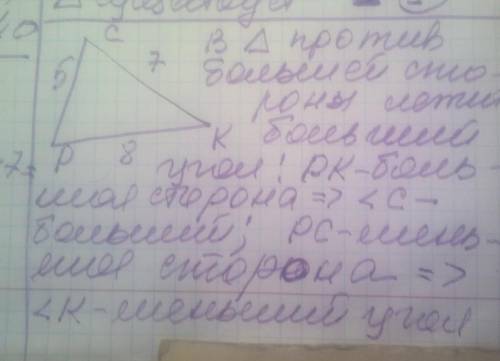 C
7
В Δ против
5
большей сто
роны лежит
K
больший
P
8
угол! PK-боль-
7=
шая сторона => <C-
больший; PC-мень-
шая сторона =>
<K-меньший угол